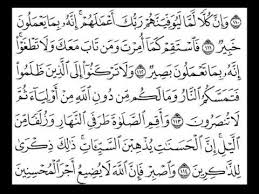 ١١٠ وَإِنَّ كُلًّا لَّمَّا لَيُوَفِّيَنَّهُمْ رَبُّكَ أَعْمَـٰلَهُمْ إِنَّهُۥ بِمَا يَعْمَلُونَ
خَبِيرٌ ١١١ فَٱسْتَقِمْ كَمَآ أُمِرْتَ وَمَن تَابَ مَعَكَ وَلَا تَطْغَوْا۟
إِنَّهُۥ بِمَا تَعْمَلُونَ بَصِيرٌ ١١٢ وَلَا تَرْكَنُوٓا۟ إِلَى ٱلَّذِينَ ظَلَمُوا۟
فَتَمَسَّكُمُ ٱلنَّارُ وَمَا لَكُم مِّن دُونِ ٱللَّهِ مِنْ أَوْلِيَآءَ ثُمَّ
لَا تُنصَرُونَ ١١٣ وَأَقِمِ ٱلصَّلَوٰةَ طَرَفَىِ ٱلنَّهَارِ وَزُلَفًا مِّنَ
ٱلَّيْلِ إِنَّ ٱلْحَسَنَـٰتِ يُذْهِبْنَ ٱلسَّيِّـَٔاتِ ذَٰلِكَ ذِكْرَىٰ
لِلذَّٰكِرِينَ ١١٤ وَٱصْبِرْ فَإِنَّ ٱللَّهَ لَا يُضِيعُ أَجْرَ ٱلْمُحْسِنِينَ